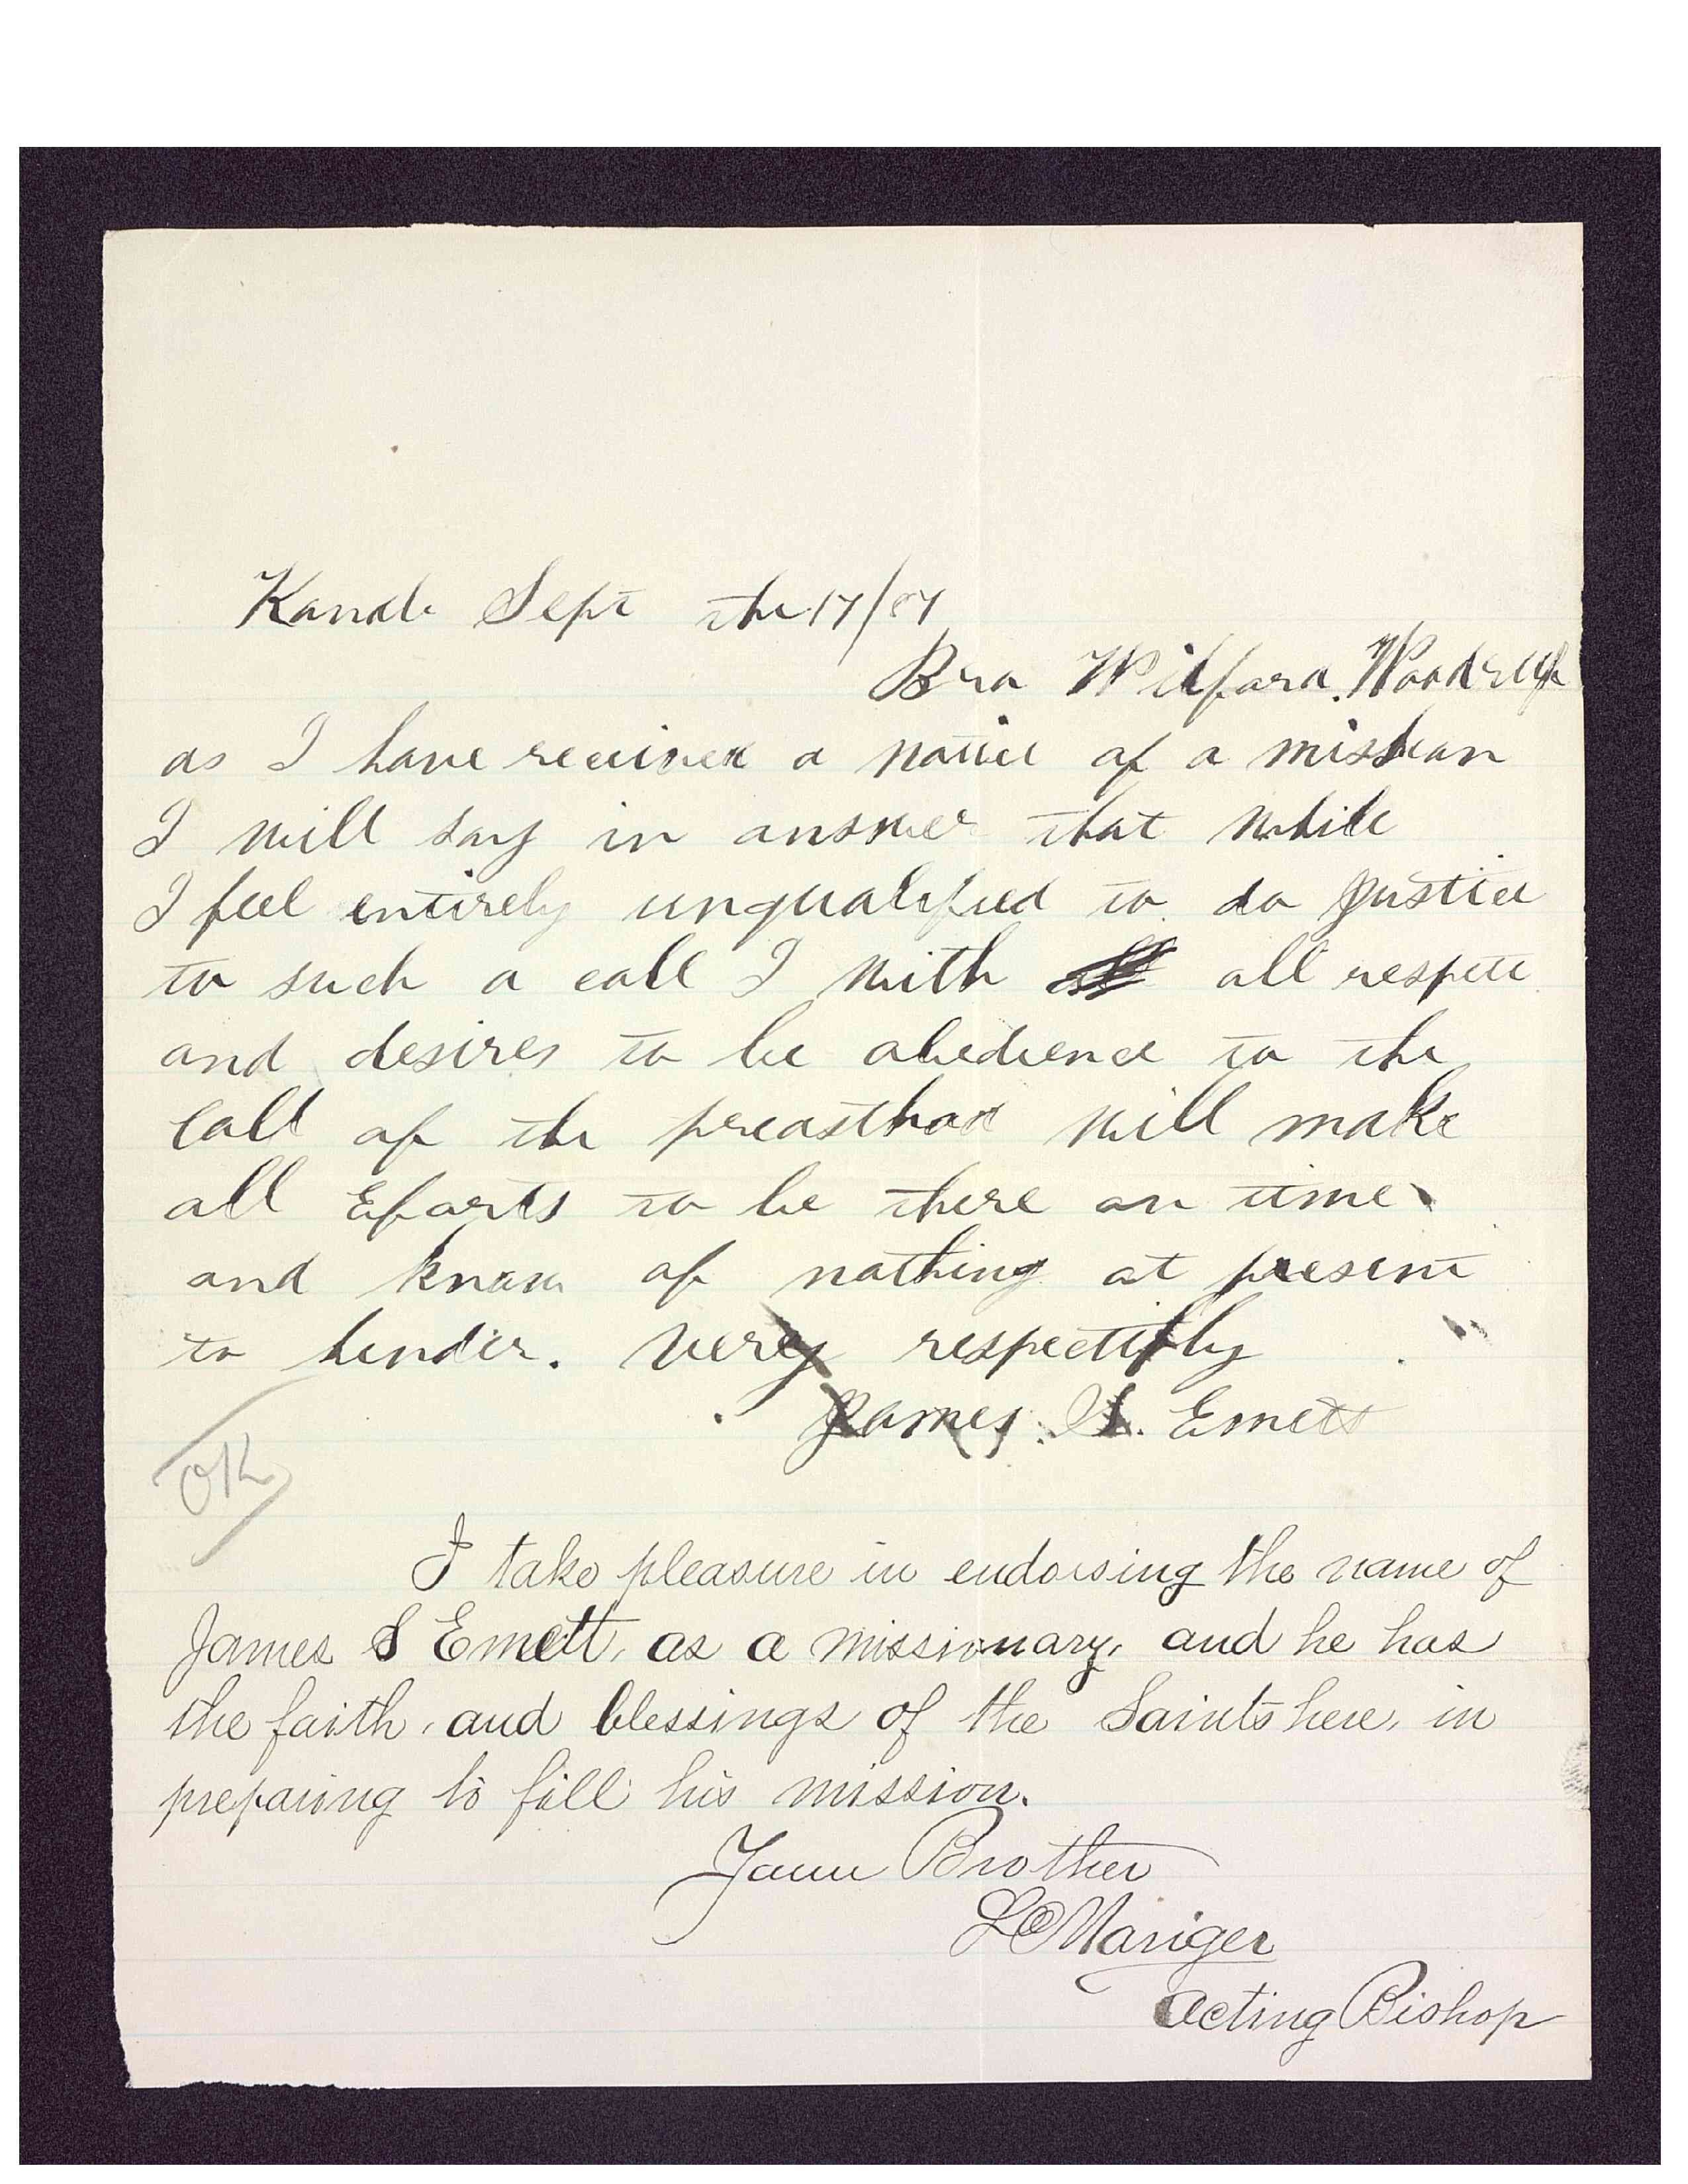 Kanab Sept the 17/87
Bro Wilford. Woodruff
as I have received a notice of a mission
I will say in answer that while
I feel entirely unqualified to do Justice
to such a call I with all respect
and desires to be obedience to the
call of the preasthod will make
all Eforts to be there on time
and know of nothing at present
to hender. Very respectifly
James. S. Emett
OK
I take pleasure in endorsing the name of
James S Emett, as a missionary, and he has
the faith, and blessings of the Saints here, in
preparing to fill his mission.
Your Brother
L C Mariger
Acting Bishop